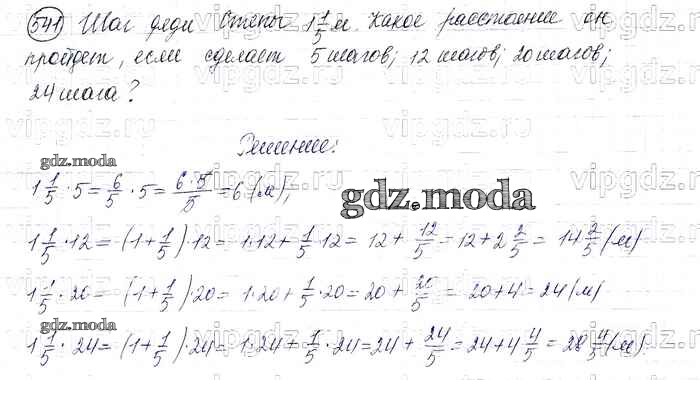 541 Шаг дяди Степы 1 1/5 м. Какое расстояние он
пройдет, если сделает 5 шагов; 12 шагов; 20 шагов;
24 шага?
Решение:
gdz.moda
1 1/5 · 5 = 6/5 · 5 = 6·5/5 = 6 (м);
gdz.moda
1 1/5 · 12 = (1 + 1/5) · 12 = 1·12 + 1/5 · 12 = 12 + 12/5 = 12 + 2 2/5 = 14 2/5 (м)
1 1/5 · 20 = (1 + 1/5) · 20 = 1·20 + 1/5 · 20 = 20 + 20/5 = 20 + 4 = 24 (м)
gdz.moda
1 1/5 · 24 = (1 + 1/5) · 24 = 1·24 + 1/5 · 24 = 24 + 24/5 = 24 + 4 4/5 = 28 4/5 (м).